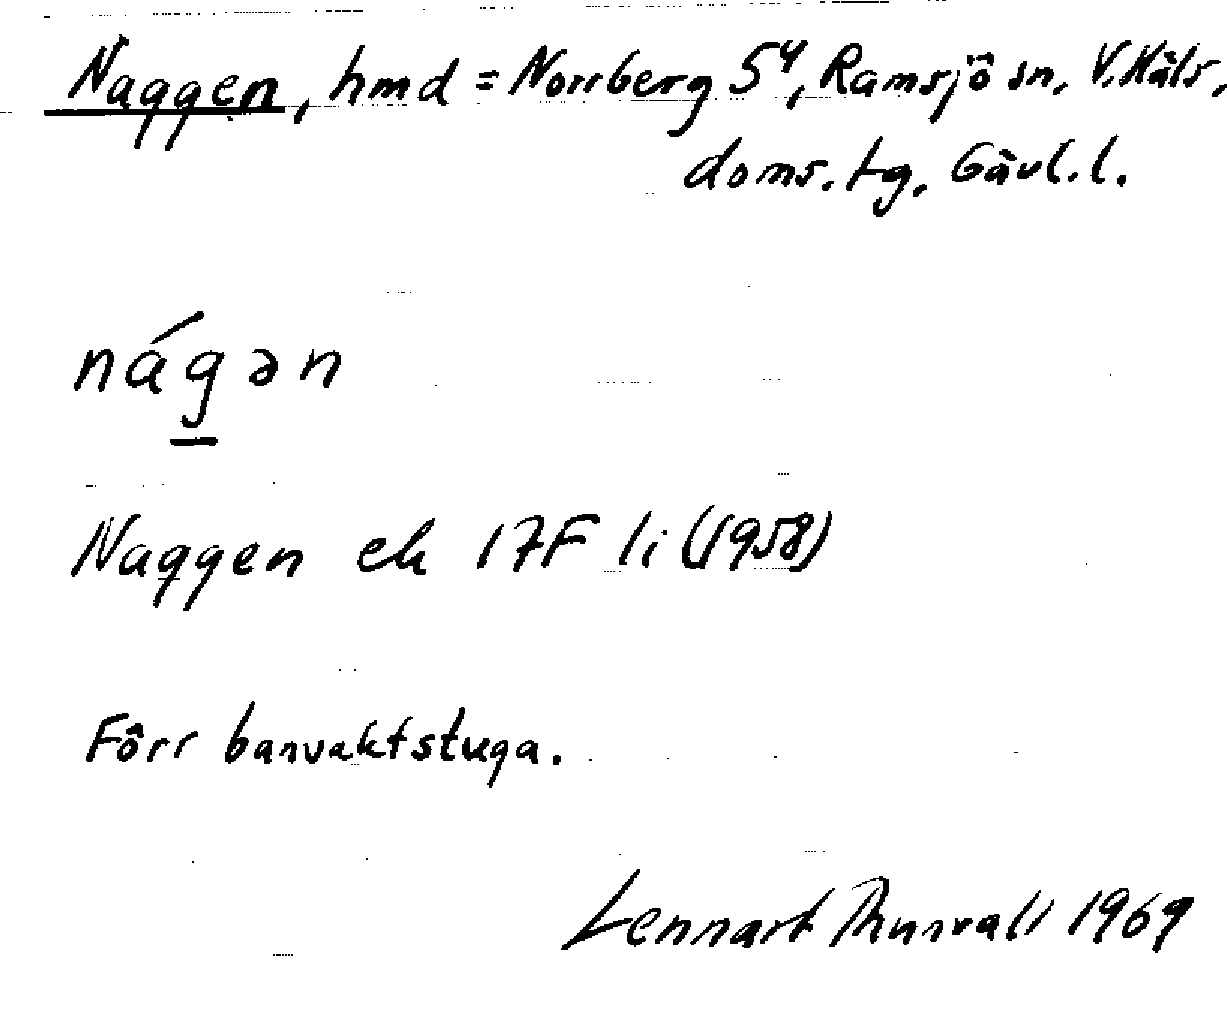 Naggen, hmd = Norrberg 5⁴, Ramsjö sn, V. Häls,
doms. tg, Gävl. l.
nágən
Naggen ek 17F li (1958)
Förr banvaktstuga.
Lennart Thunvall 1969